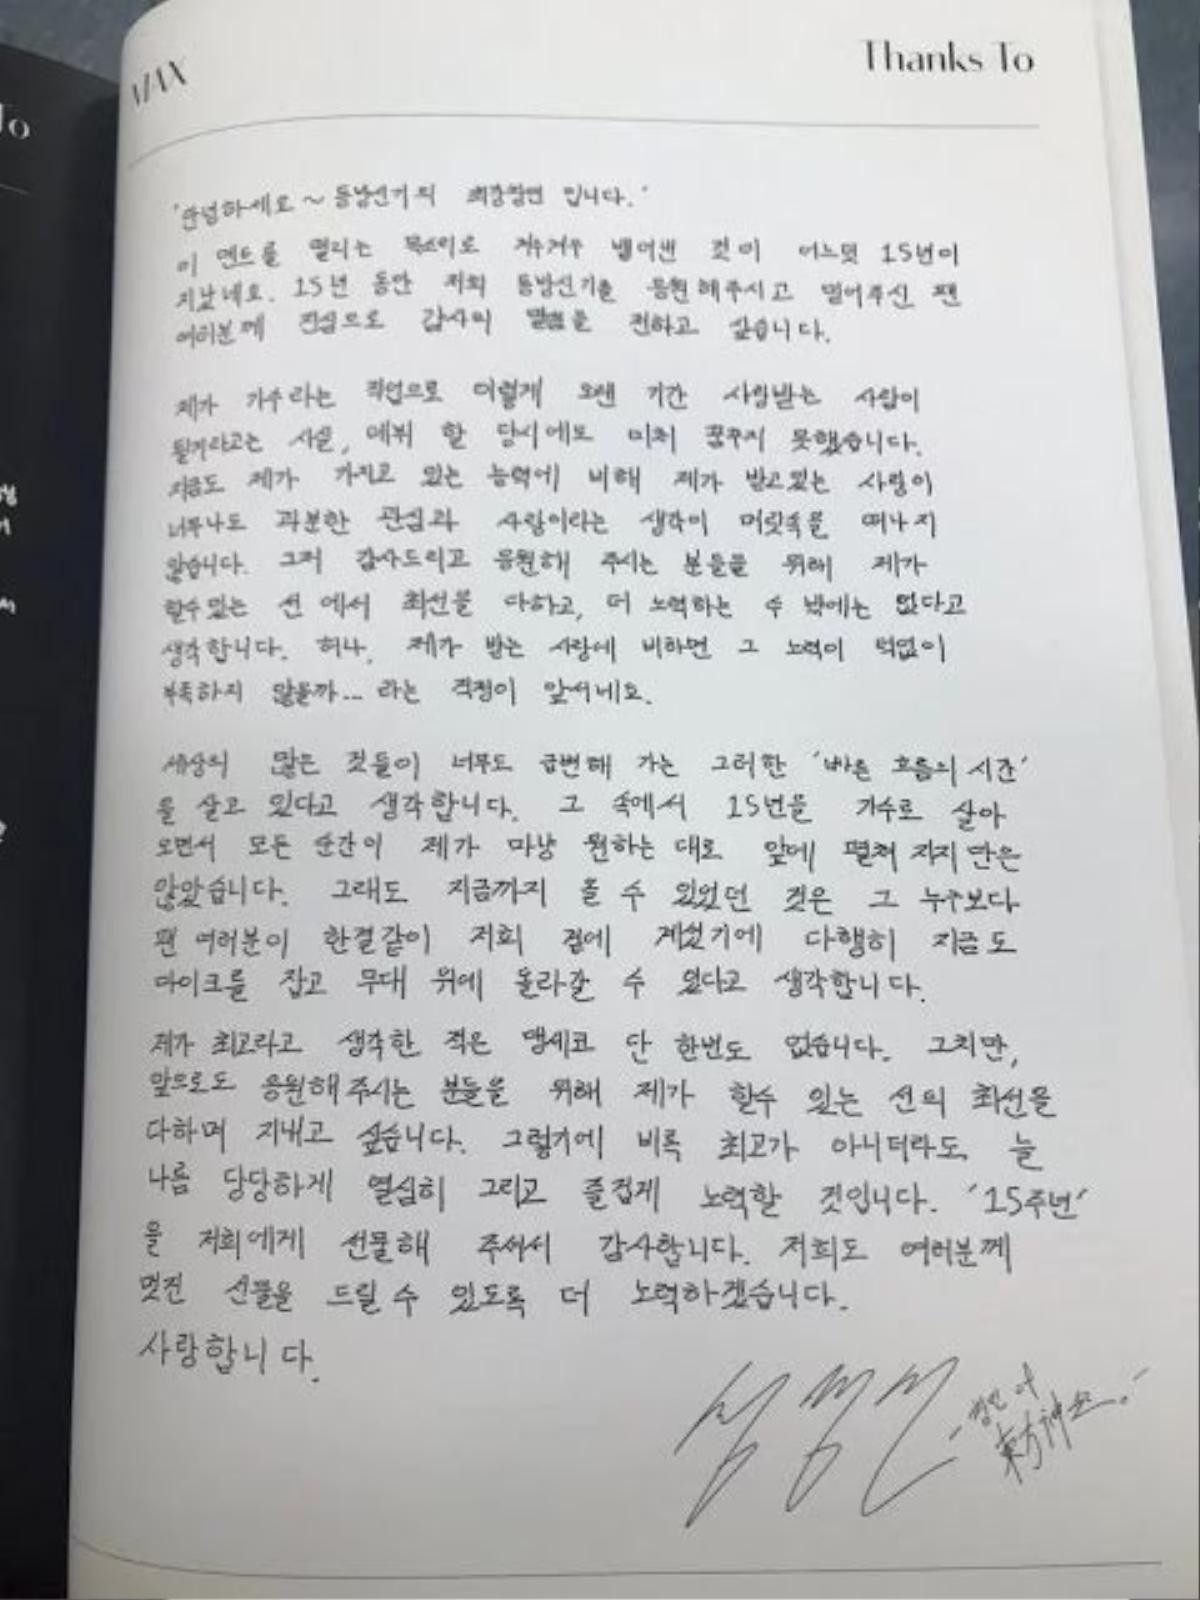 MAX
Thanks To
'안녕하세요~ 동방신기의 최강창민 입니다.'
이 멘트를 떨리는 목소리로 겨우겨우 뱉어낸 것이 어느덧 15년이
지났네요. 15년 동안 저희 동방신기를 응원해주시고 믿어주신 팬
여러분께 진심으로 감사의 말씀을 전하고 싶습니다.
제가 가수라는 직업으로 이렇게 오랜 기간 사랑받는 사람이
될거라고는 사실, 데뷔 할 당시에도 미처 꿈꾸지 못했습니다.
지금도 제가 가지고 있는 능력에 비해 제가 받고있는 사랑이
너무나도 과분한 관심과 사랑이라는 생각이 머릿속을 떠나지
않습니다. 그저 감사드리고 응원해 주시는 분들을 위해 제가
할수있는 선 에서 최선을 다하고, 더 노력하는 수 밖에는 없다고
생각합니다. 허나, 제가 받는 사랑에 비하면 그 노력이 턱없이
부족하지 않을까... 라는 걱정이 앞서네요.
세상의 많은 것들이 너무도 급변해 가는 그러한 '빠른 흐름의 시간'
을 살고 있다고 생각합니다. 그 속에서 15년을 가수로 살아
오면서 모든 순간이 제가 마냥 원하는 대로 앞에 펼쳐 지지 만은
않았습니다. 그래도 지금까지 올 수 있었던 것은 그 누구보다
팬 여러분이 한결같이 저희 곁에 계셨기에 다행히 지금도
마이크를 잡고 무대 위에 올라갈 수 있다고 생각합니다.
제가 최고라고 생각한 적은 맹세코 단 한번도 없습니다. 그치만,
앞으로도 응원해주시는 분들을 위해 제가 할수 있는 선의 최선을
다하며 지내고 싶습니다. 그렇기에 비록 최고가 아니더라도, 늘
나름 당당하게 열심히 그리고 즐겁게 노력할 것입니다. '15주년'
을 저희에게 선물해 주셔서 감사합니다. 저희도 여러분께
멋진 선물을 드릴 수 있도록 더 노력하겠습니다.
사랑합니다.
東方神起